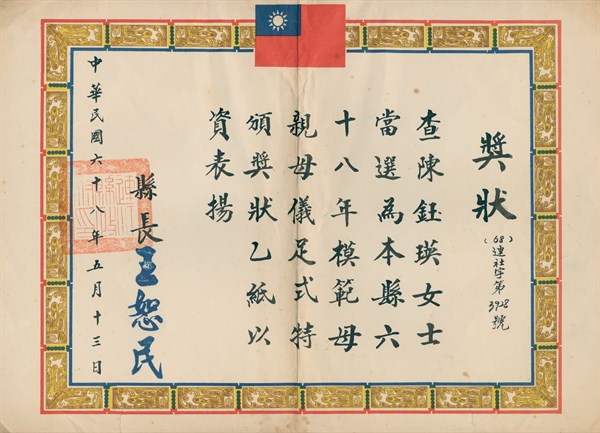 獎狀
(68)連社字第3928號
查陳鈺瑛女士
當選為本縣六
十八年模範母
親母儀足式特
頒獎狀乙紙以
資表揚
縣長王恕民
中華民國六十八年五月十三日